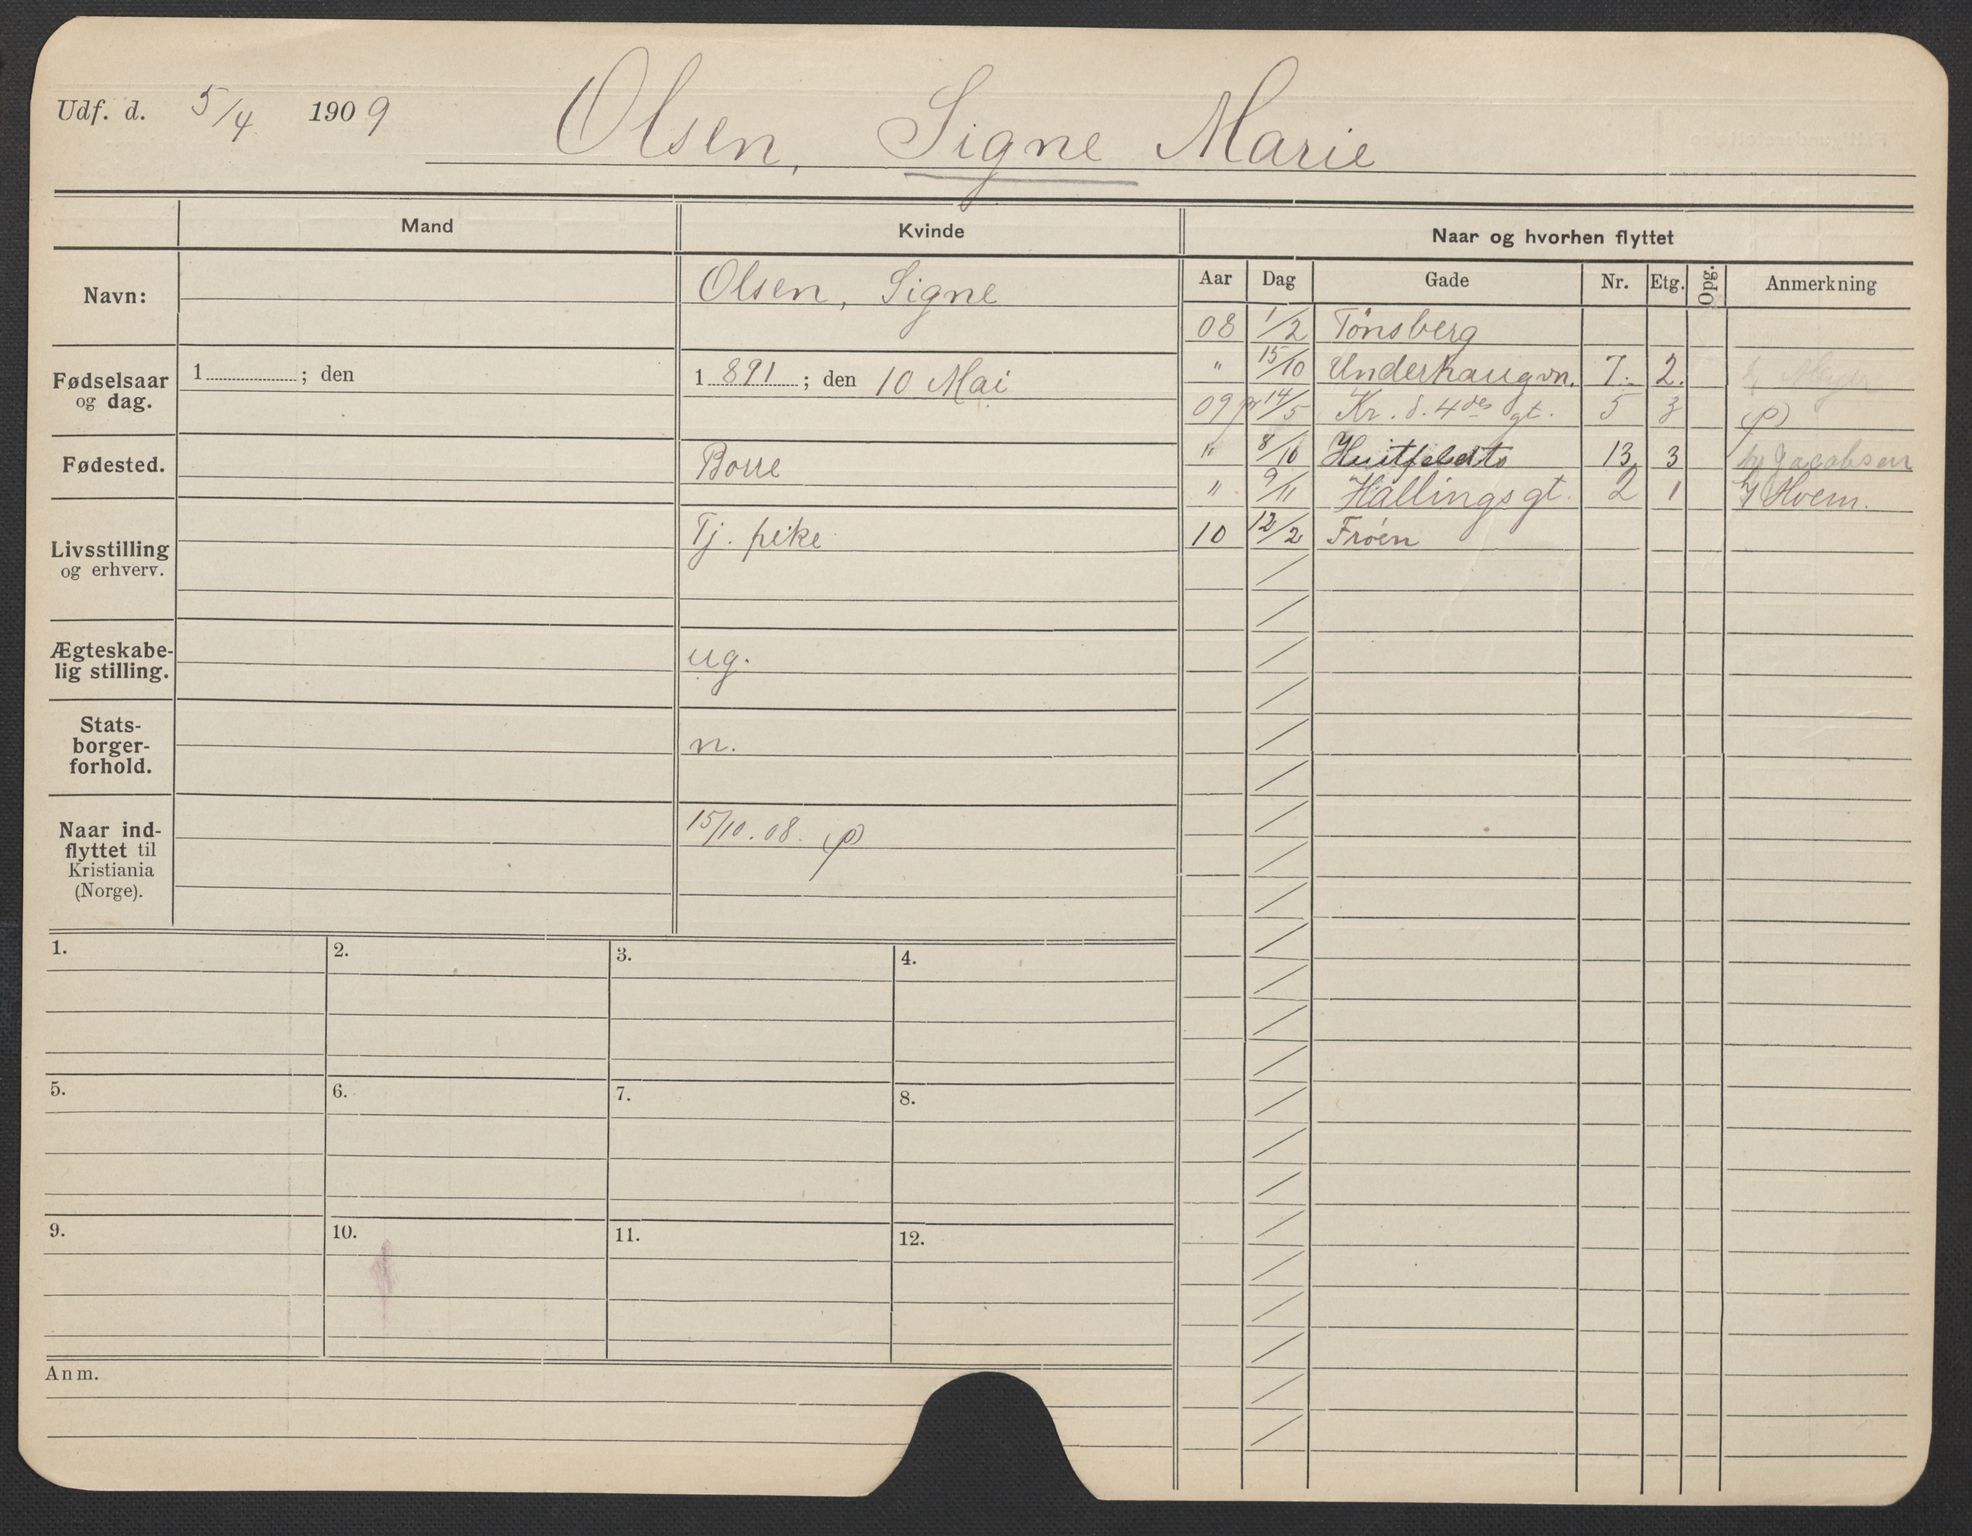 Udf. d. 5/4 1909 Olsen, Signe Marie
Mand Kvinde Naar og hvorhen flyttet
Aar Dag Gade Nr. Etg. Opg. Anmerkning
Navn: Olsen, Signe
Fødselsaar og dag. 1 ; den 1891 ; den 10 Mai
Fødested. Borre
Livsstilling og erhverv. Tj. pike
Ægteskabe-
lig stilling. ug.
Stats-
borger-
forhold. n.
Naar ind-
flyttet til
Kristiania
(Norge). 15/10.08. (p)
08 1/2 Tønsberg
" 15/10 Underhaugvn. 7. 2. h/ Meyer
09 14/5 Kr. d. 4des gt. 5 3 (p)
" 8/10 Huitfeldts 13 3 h/ Jacobsen
" 9/11 Hallingsgt. 2 1 h/ Hvem.
10 12/2 Frøen
1. 2. 3. 4.
5. 6. 7. 8.
9. 10. 11. 12.
Anm.